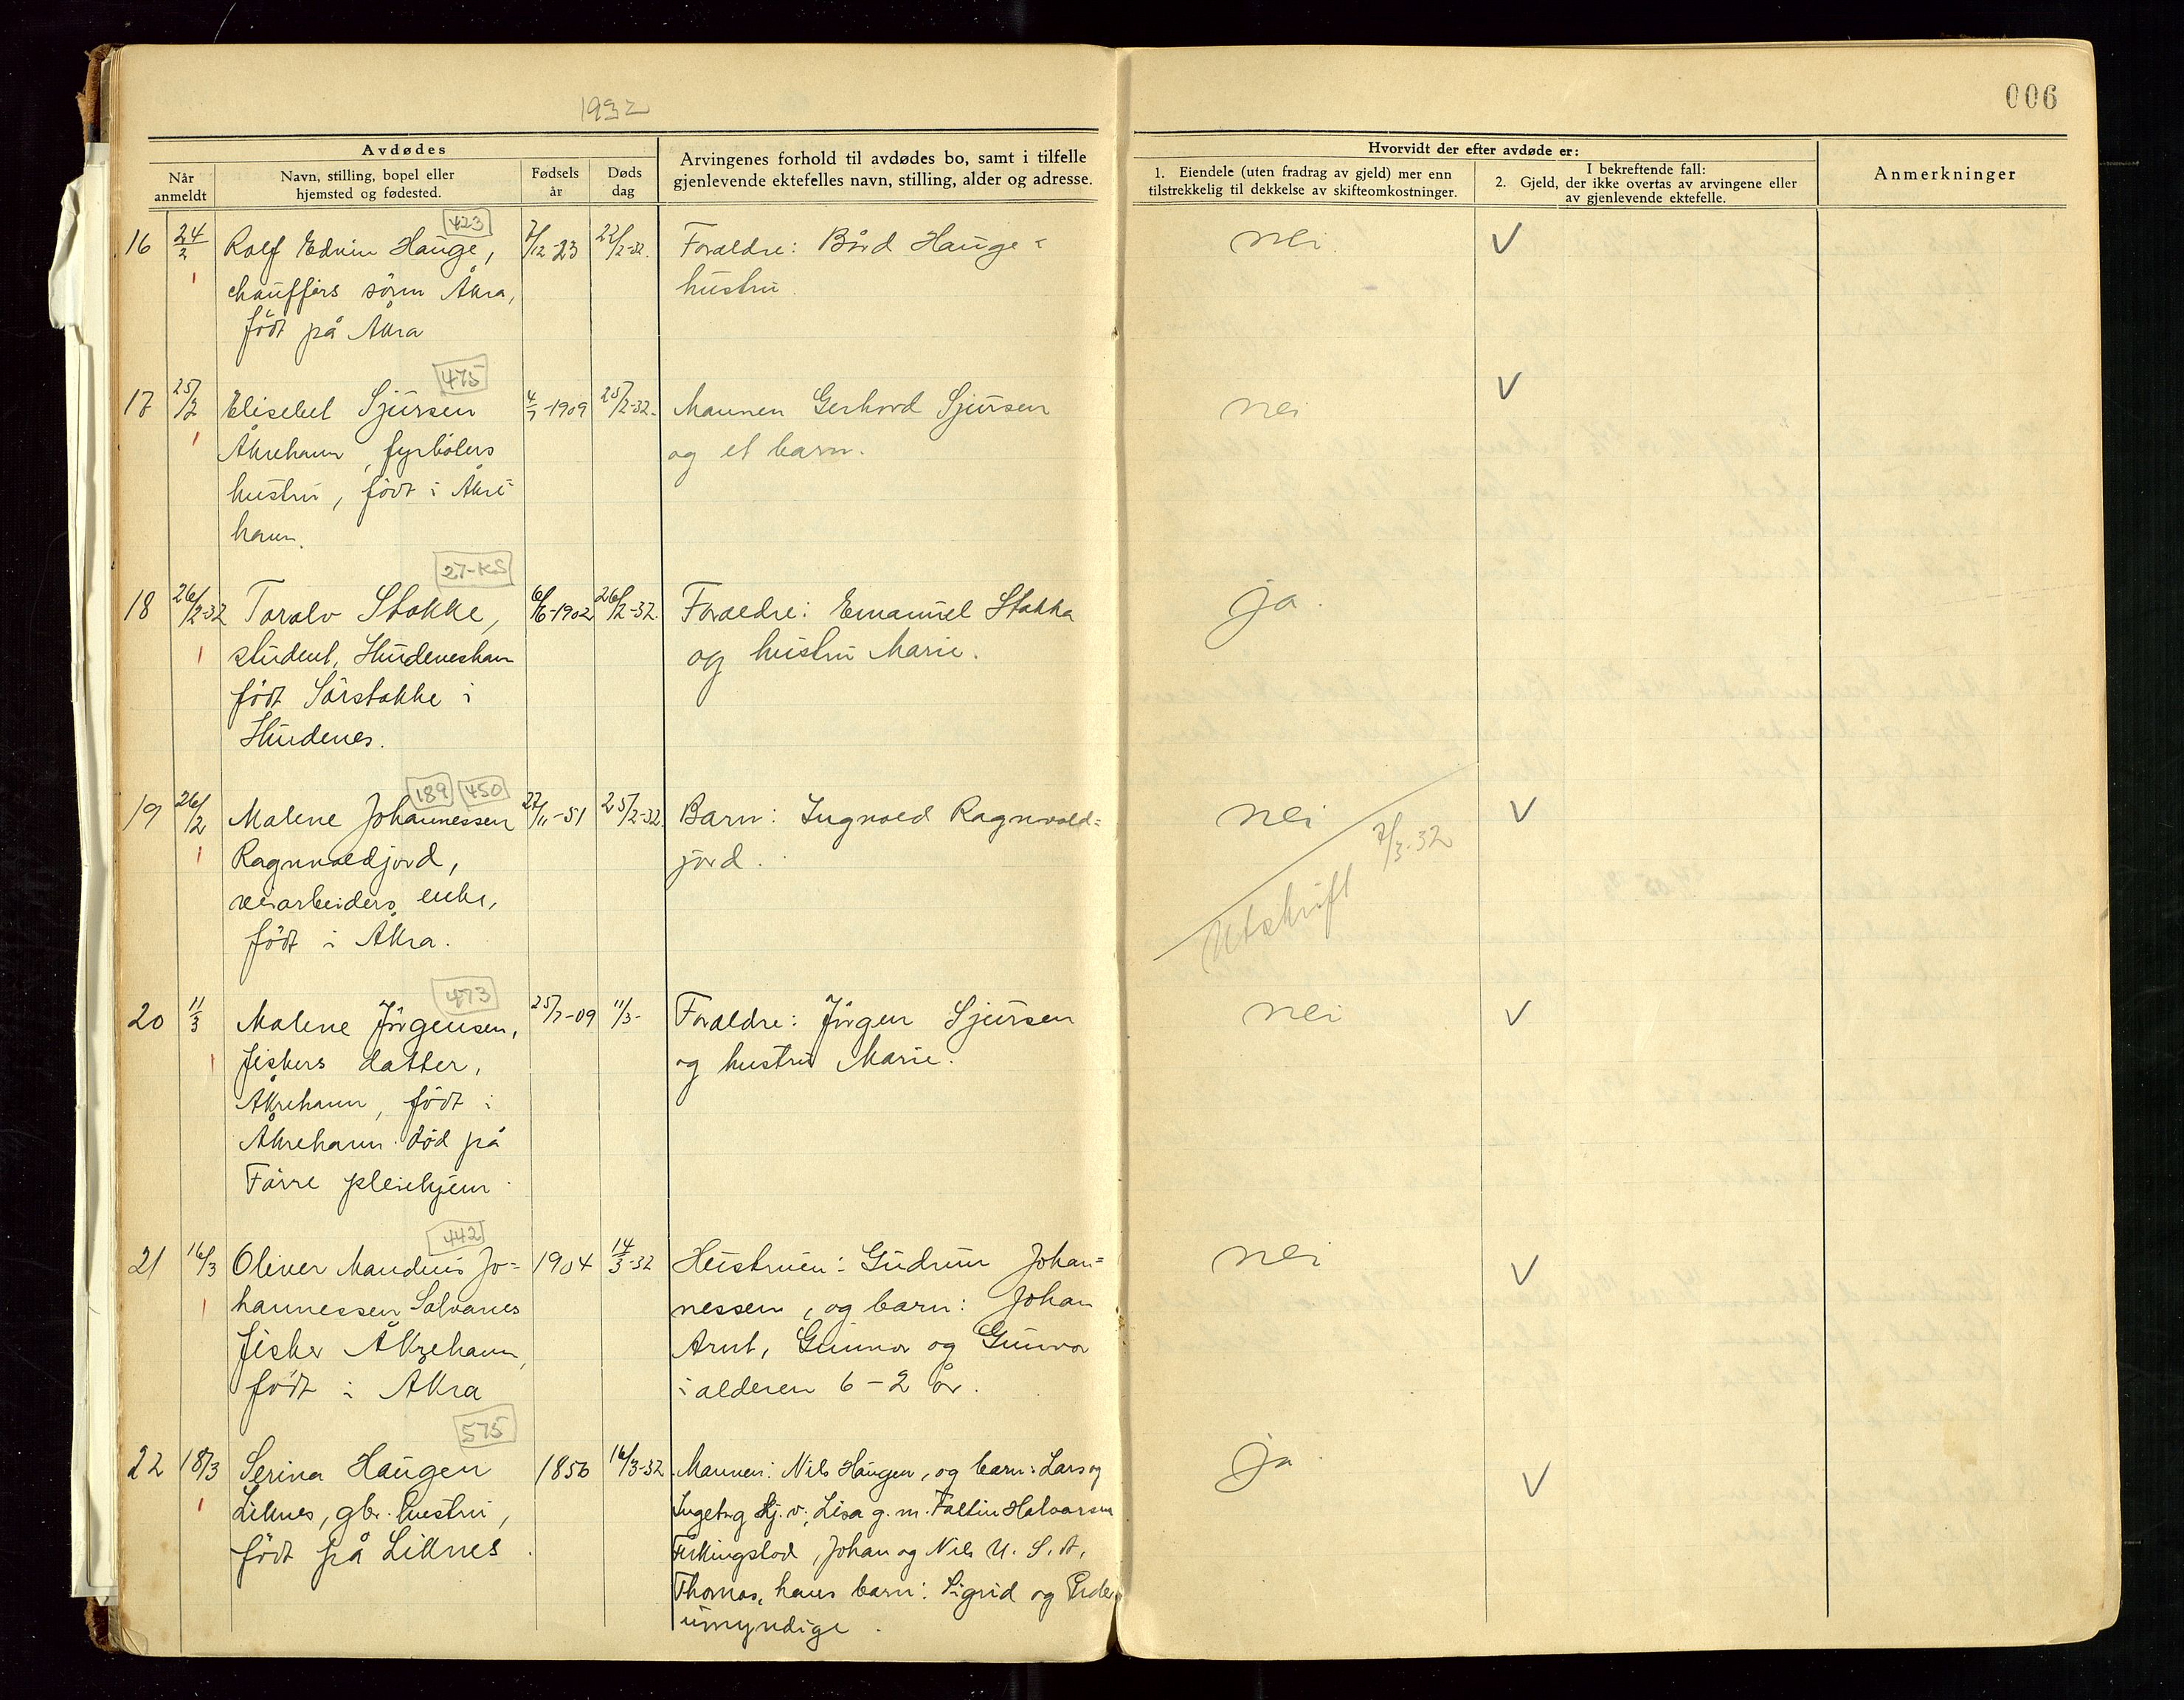 1932
006
Avdødes
Når anmeldt
Navn, stilling, bopel eller
hjemsted og fødested.
Fødsels år
Døds dag
Arvingenes forhold til avdødes bo, samt i tilfelle
gjenlevende ektefelles navn, stilling, alder og adresse.
Hvorvidt der efter avdøde er:
1. Eiendele (uten fradrag av gjeld) mer enn
tilstrekkelig til dekkelse av skifteomkostninger.
I bekreftende fall:
2. Gjeld, der ikke overtas av arvingene eller
av gjenlevende ektefelle.
Anmerkninger
423
16 24/2 Rolf Edvin Hauge, 7/12-23 22/2-32. Foreldre: Bård Hauge nei V
chaufførs sønn Åkra, hustru
født på Åkra
475
17 25/2 Elisebet Sjursen 4/7-1909 25/2-32. Mannen Gerhard Sjursen nei V
Åkrehavn, fyrbøters og et barn.
hustru, født i Åkre-
havn.
27-KS
18 26/2-32 Toralv Stokke, 6/6-1902 26/2-32. Foraldre: Emanuel Stokke ja.
student, Hudeneshavn og hustru Marie.
født Sørstokke i
Hudenes.
189 450
19 26/2 Malene Johannessen 27/11-51 25/2-32 Barn: Ingvald Ragnvald= nei V
Ragnvaldjord, jord.
veiarbeiders enke,
født i Åkra.
Utskrift 7/3-32
473
20 11/3 Malene Jørgensen, 25/7-09 11/3- Foraldre: Jørgen Sjursen nei V
fiskers datter, og hustru Marie.
Åkrehavn, født i
Åkrehavn. død på
Førre pleiehjem
442
21 16/3 Oliver Mandius Jo= 1904 14/3-32 Hustruen: Gudrun Johan= nei V
hannessen Solvanes nessen, og barn: Johan
fisker Åkrehavn, Arnt, Gunnar og Gunvor
født i Åkra i alderen 6-2 år.
575
22 18/3 Serina Haugen 1856 16/3-32 Mannen: Nils Haugen, og barn: Lars og ja V
Liknes, gbr. hustru, Ingebrg Skj. v., Lisa g. m. Faltin Halvorsen
født på Liknes. Ferkingstad, Johan og Nils U. S. A.
Thomas, hans barn: Sigrid og
umyndige.